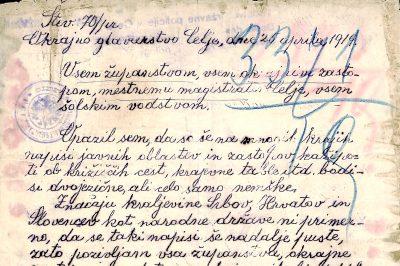 Štiv. 70/pr.
Okrajno glavarstvo Celje, dne 26. aprila 1919.
Vsem županstvom, vsem okrajnim zasto-
pom, mestnemu magistratu Celje, vsem
šolskim vodstvom.
Opazil sem, da so še na mnogih krajih
napisi javnih oblastev in zastopov kažipo-
ti ob križiščih cest, krajevne table itd. bodi-
si dvojezične, ali celo samo nemške.
Značaju kraljevine Srbov, Hrvatov in
Slovencev kot narodne države ni primer-
no, da se taki napisi še nadalje puste,
zato pozivljam vsa županstva, okrajne